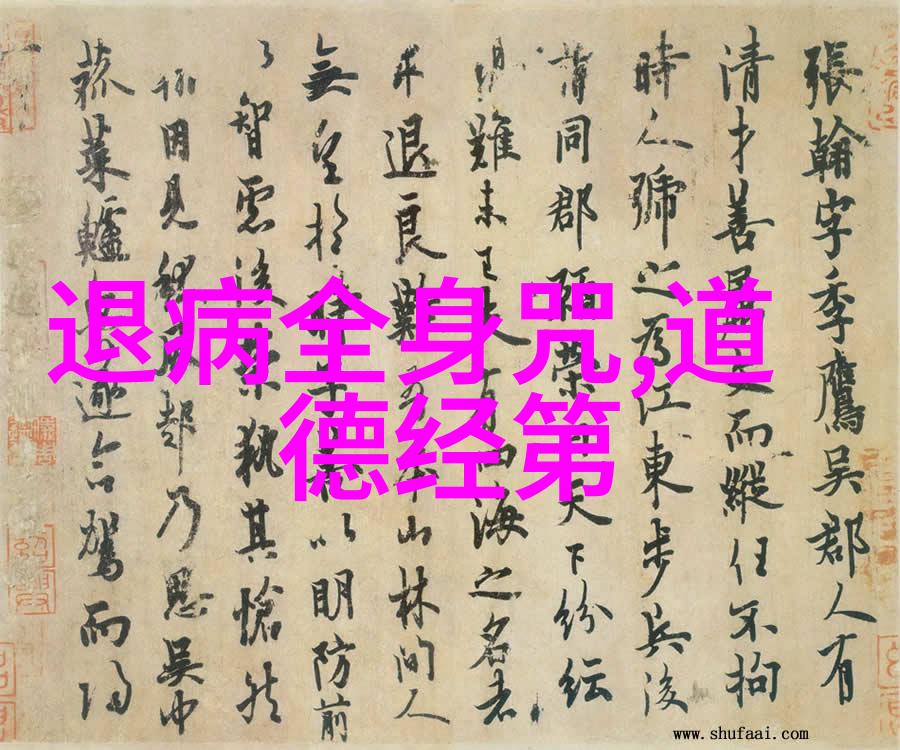 張翰字季鷹吳郡人有
清才善屬文而縱任不拘
時人號之為江東步兵後
謂同郡顧榮曰天下紛紜
禍難未已夫有四海之名者
求退良難吾本山林間人
無望於時子善以明防前
以智慮後榮執其愴然
翰因見秋風起乃思吳中
菰菜鱸魚遂命駕而歸
退病全身咒,道
德经第
www.shufaai.com